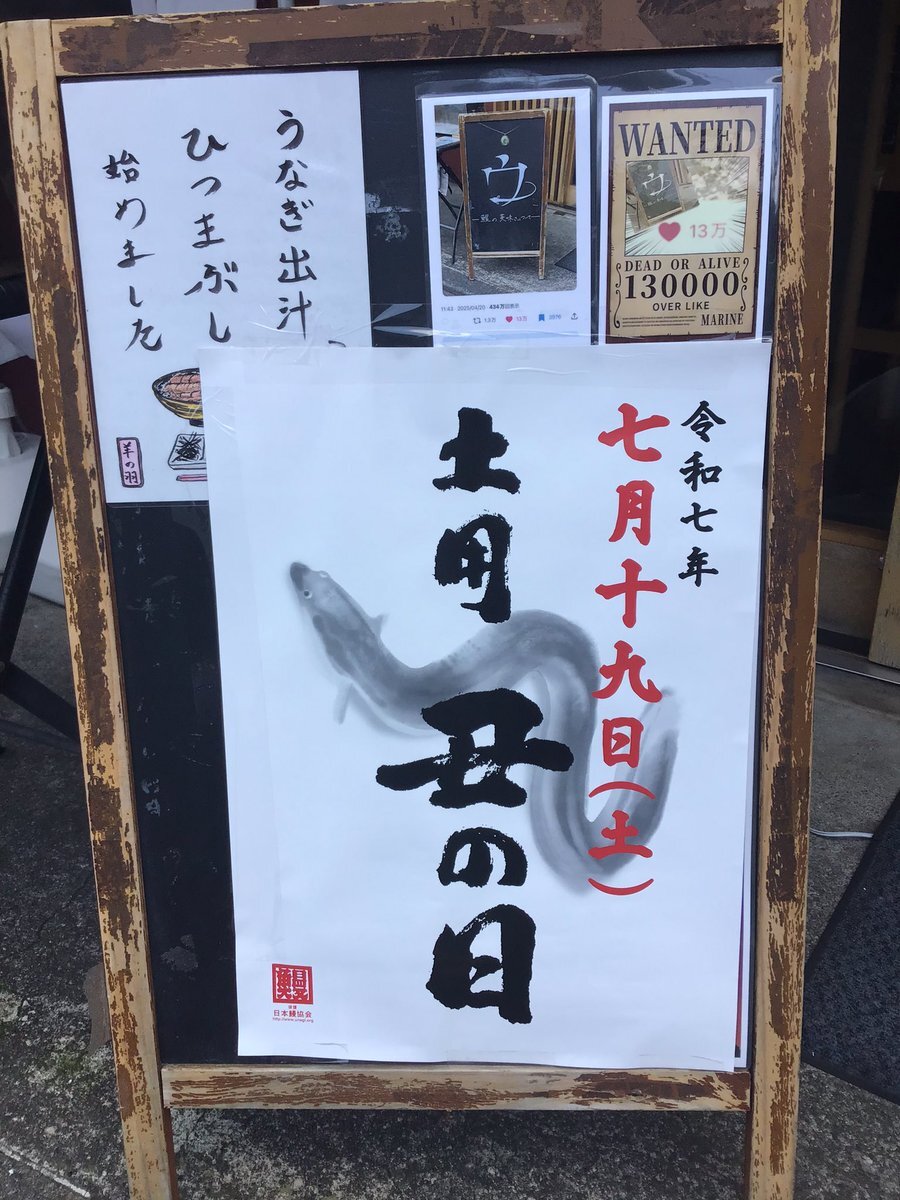 うなぎ出汁
ひつまぶし
始めました
羊の羽
ウ
11:43 · 2025/04/20 · 434万回表示
1.3万 13万 3976
WANTED
ウ
13万
DEAD OR ALIVE
130000
OVER LIKE
MARINE
令和七年
七月十九日(土)
土用丑の日
鰻
日本鰻協会
http://www.unagi.org